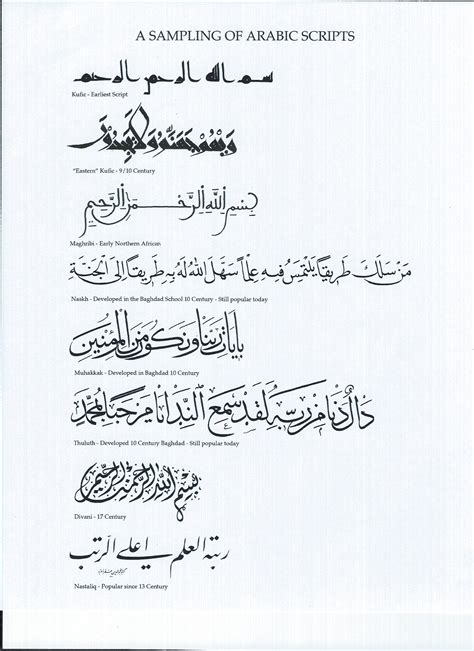 A SAMPLING OF ARABIC SCRIPTS
بسم الله الرحمن الرحيم
Kufic - Earliest Script
"Eastern" Kufic - 9/10 Century
بِسْمِ اللهِ الرَّحْمٰنِ الرَّحِيمِ
Maghribi - Early Northern African
مَنْ سَلَكَ طَرِيقًا يَلْتَمِسُ فِيهِ عِلْمًا سَهَّلَ اللهُ لَهُ بِهِ طَرِيقًا إِلَى الْجَنَّةِ
Naskh - Developed in the Baghdad School 10 Century - Still popular today
بايات ربنا ونكون من المؤمنين
Muhakkak - Developed in Baghdad 10 Century
من ربه لقد سمع الندا مرحبا بمحمد
Thuluth - Developed 10 Century Baghdad - Still popular today
بسم الله الرحمن الرحيم
Divani - 17 Century
رتبة العلم اعلى الرتب
Nastaliq - Popular since 13 Century